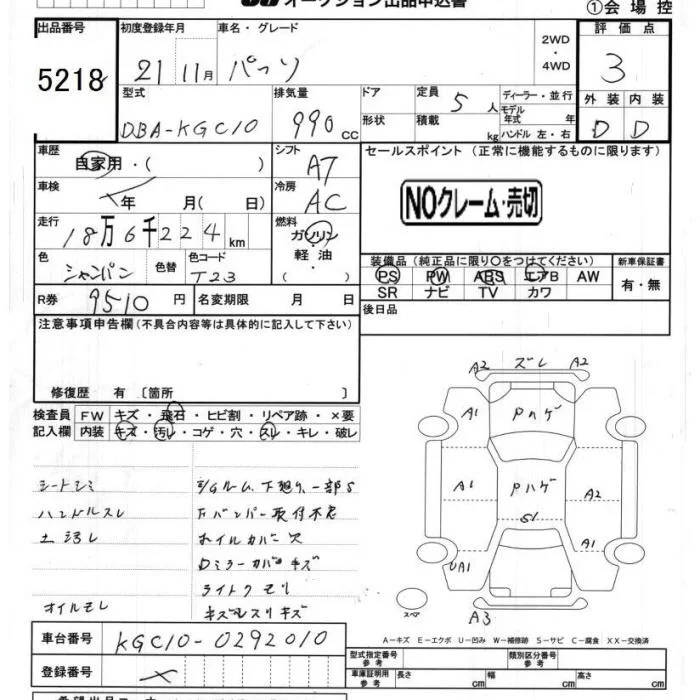 オークション出品申込書
①会場控
出品番号 初度登録年月 車名・グレード 2WD・4WD 評価点
5218 21 11月 パッソ 3
型式 排気量 ドア 定員 5人 ディーラー・並行 外装 内装
DBA-KGC10 990cc 形状 積載 kg モデル年式 年 ハンドル 左・右 D D
車歴 自家用・( ) シフト AT セールスポイント (正常に機能するものに限ります)
車検 年 月( 日) 冷房 AC NOクレーム・売切
走行 18万6千224km 燃料 ガソリン・軽油・( )
色 シャンパン 色替 色コード T23
装備品(純正品に限り○をつけてください) 新車保証書
PS PW ABS エアB AW 有・無
SR ナビ TV カワ
R券 9510円 名変期限 月 日 後日品
注意事項申告欄(不具合内容等は具体的に記入して下さい)
修復歴 有 〔箇所 〕
検査員記入欄 FW キズ・飛石・ヒビ割・リペア跡・×要
内装 キズ・汚レ・コゲ・穴・スレ・キレ・破レ
シートシミ
ハンドルスレ
オイルモレ
下廻り、一部S
Fバンパー取付不良
ホイルカバー欠
Dミラーカバーキズ
ライトクモリ
キズ スリキズ
A2 ズレ A2
A1 Pハゲ
A1 Pハゲ A2
S1
UA1 A1
スペア A3
A-キズ E-エクボ U-凹み W-補修跡 S-サビ C-腐食 XX-交換済
車台番号 KGC10-0292010
登録番号
型式指定番号 参考 類別区分番号 参考
車庫証明用 参考 長さ cm 幅 cm 高さ cm